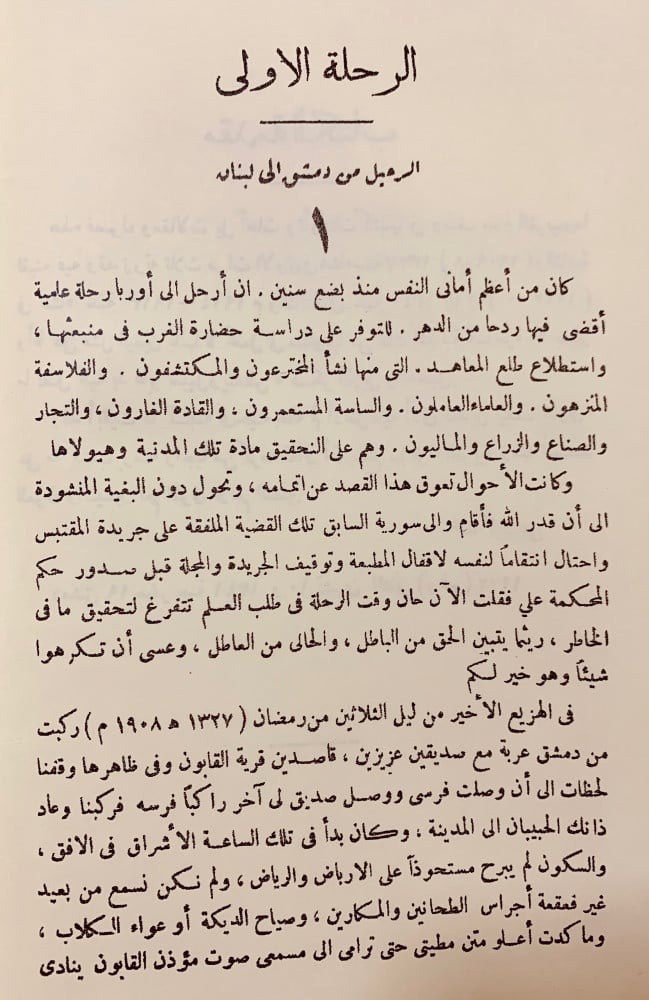 الرحلة الاولى
الرحيل من دمشق الى لبنان
١
كان من أعظم أمانى النفس منذ بضع سنين . ان أرحل الى أوربا رحلة علمية
أقضى فيها ردحا من الدهر . للتوفر على دراسة حضارة الغرب فى منبعثها ،
واستطلاع طلع المعاهد . التى منها نشأ المخترعون والمكتشفون . والفلاسفة
المنزهون . والعلماء العاملون . والساسة المستعمرون ، والقادة الغارون ، والتجار
والصناع والزراع والماليون . وهم على التحقيق مادة تلك المدنية وهيولاها
وكانت الأحوال تعوق هذا القصد عن اتمامه ، وتحول دون البغية المنشودة
الى أن قدر الله فأقام والى سورية السابق تلك القضية الملفقة على جريدة المقتبس
واحتال انتقاماً لنفسه لاقفال المطبعة وتوقيف الجريدة والمجلة قبل صدور حكم
المحكمة علي فقلت الآن حان وقت الرحلة فى طلب العلم تتفرغ لتحقيق ما فى
الخاطر ، ريثما يتبين الحق من الباطل ، والحالى من العاطل ، وعسى أن تكرهوا
شيئاً وهو خير لكم
فى الهزيع الأخير من ليل الثلاثين من رمضان ( ١٣٢٧ ھ ١٩٠٨ م ) ركبت
من دمشق عربة مع صديقين عزيزين ، قاصدين قرية القابون وفى ظاهرها وقفنا
لحظات الى أن وصلت فرسى ووصل صديق لى آخر راكباً فرسه فركبنا وعاد
ذانك الحبيبان الى المدينة ، وكان بدأ فى تلك الساعة الأشراق فى الافق ،
والسكون لم يبرح مستحوذاً على الارباض والرياض ، ولم نكن نسمع من بعيد
غير قعقعة أجراس الطحانين والمكارين ، وصياح الديكة أو عواء الكلاب ،
وما كدت أعلو متن مطيتى حتى ترامى الى مسمعى صوت مؤذن القابون ينادى